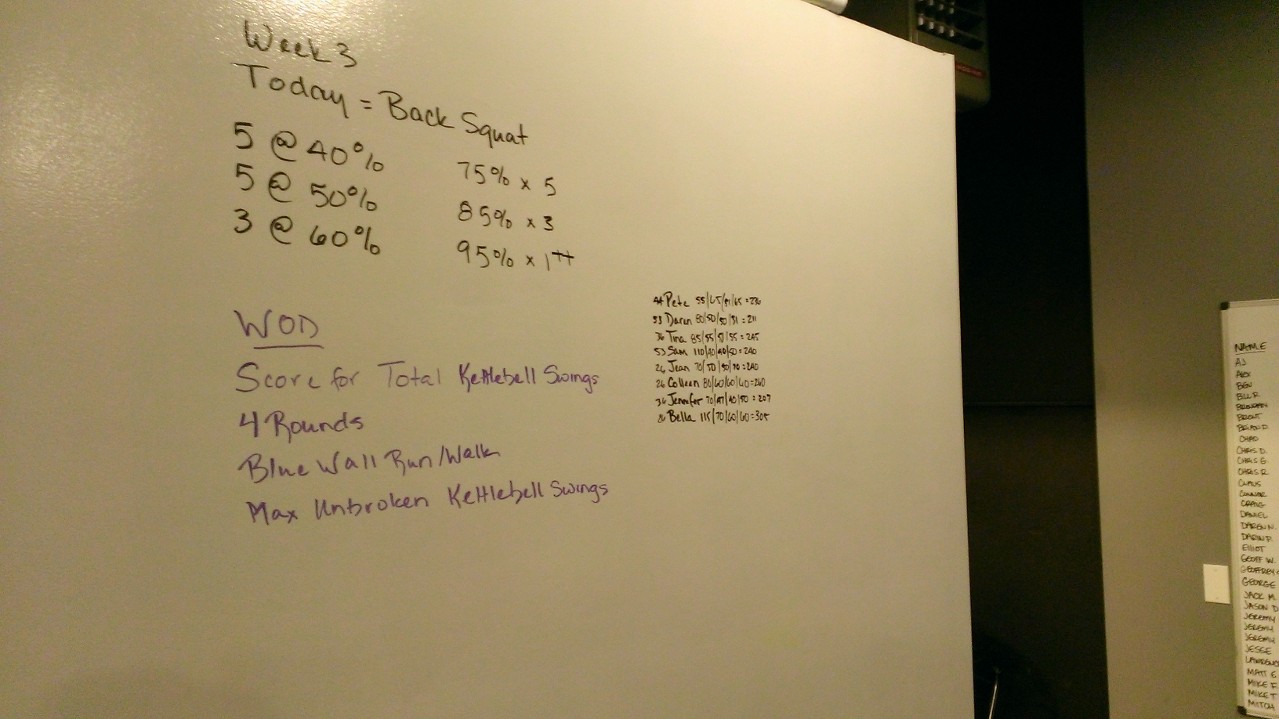 Week 3
Today = Back Squat
5 @ 40%
5 @ 50%
3 @ 60%
75% x 5
85% x 3
95% x 1++
WOD
Score for Total Kettlebell Swings
4 Rounds
Blue Wall Run/Walk
Max Unbroken Kettlebell Swings
44 Pete 55/65/ /65 =
53 Daren 80/50/50/31 = 211
Tina 85/55/ /55 = 245
53 Sam 110/40/40/50 = 240
26 Jean 70/50/50/70 = 240
26 Colleen 80/60/60/60 = 260
Jennifer 70/47/40/50 = 207
Bella 115/70/60/60 = 305
NAME
AJ
ALEX
BEN
BILL R.
BRENDAN
BRENT
BRIAN D.
CHAD
CHRIS D.
CHRIS G.
CHRIS R.
CONNOR
CRAIG
DANIEL
DAREN N.
DARIN P.
ELLIOT
GEOFF W.
GEOFFREY
GEORGE
JACK M.
JASON D
JEREMY
JEREMY
JEREMY
JESSE
LAWRENCE
MATT E
MIKE F.
MIKE T
MITCH